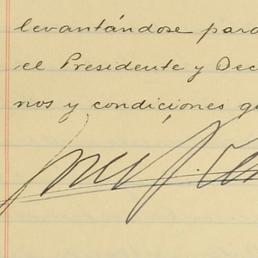 levantándose para
el Presidente y Dec
nos y condiciones qu